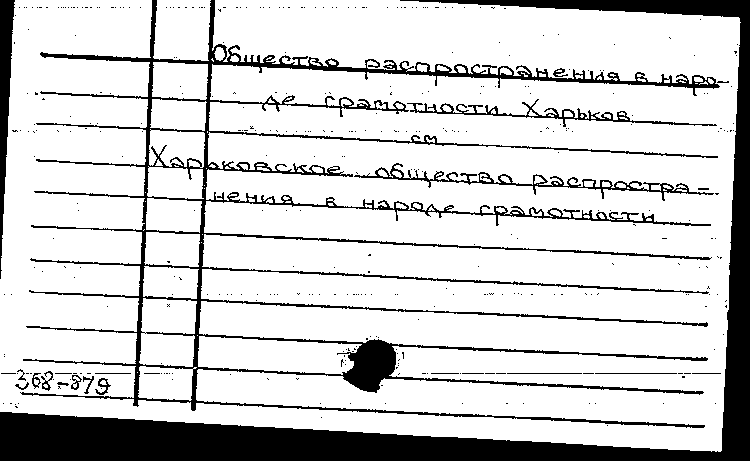 Общество распространения в наро-
де грамотности. Харьков
см
Харьковское общество распростра=
нения в народе грамотности
368-879